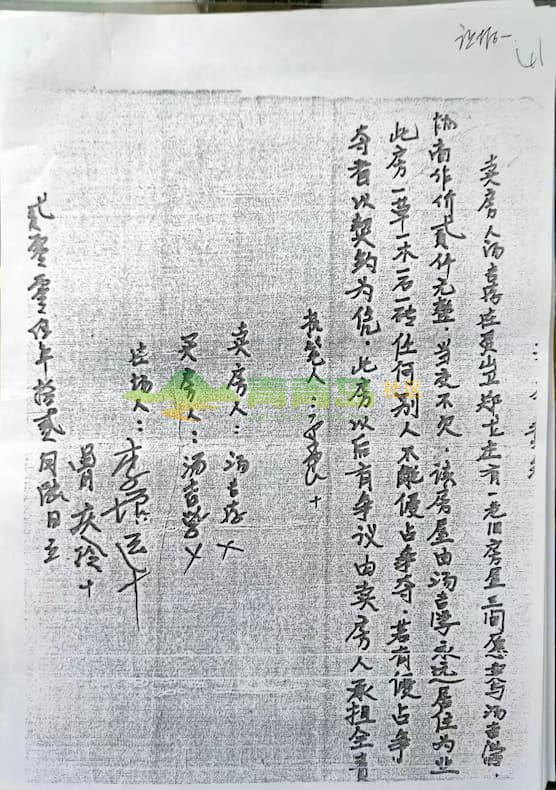 证据一
卖房人汤吉存在夏山卫郑七庄有一老旧房屋三间愿卖与汤吉学.
协商作价贰仟元整.当交不欠.该房屋由汤吉学永远居住为业
此房一草一木一石一砖任何别人不敢侵占争夺.若有侵占争
夺者以契约为凭.此房以后有争议由卖房人承担全责
执笔人:
卖房人:汤吉存
买房人:汤吉学
在场人:李
贰零零伍年拾贰月陆日立